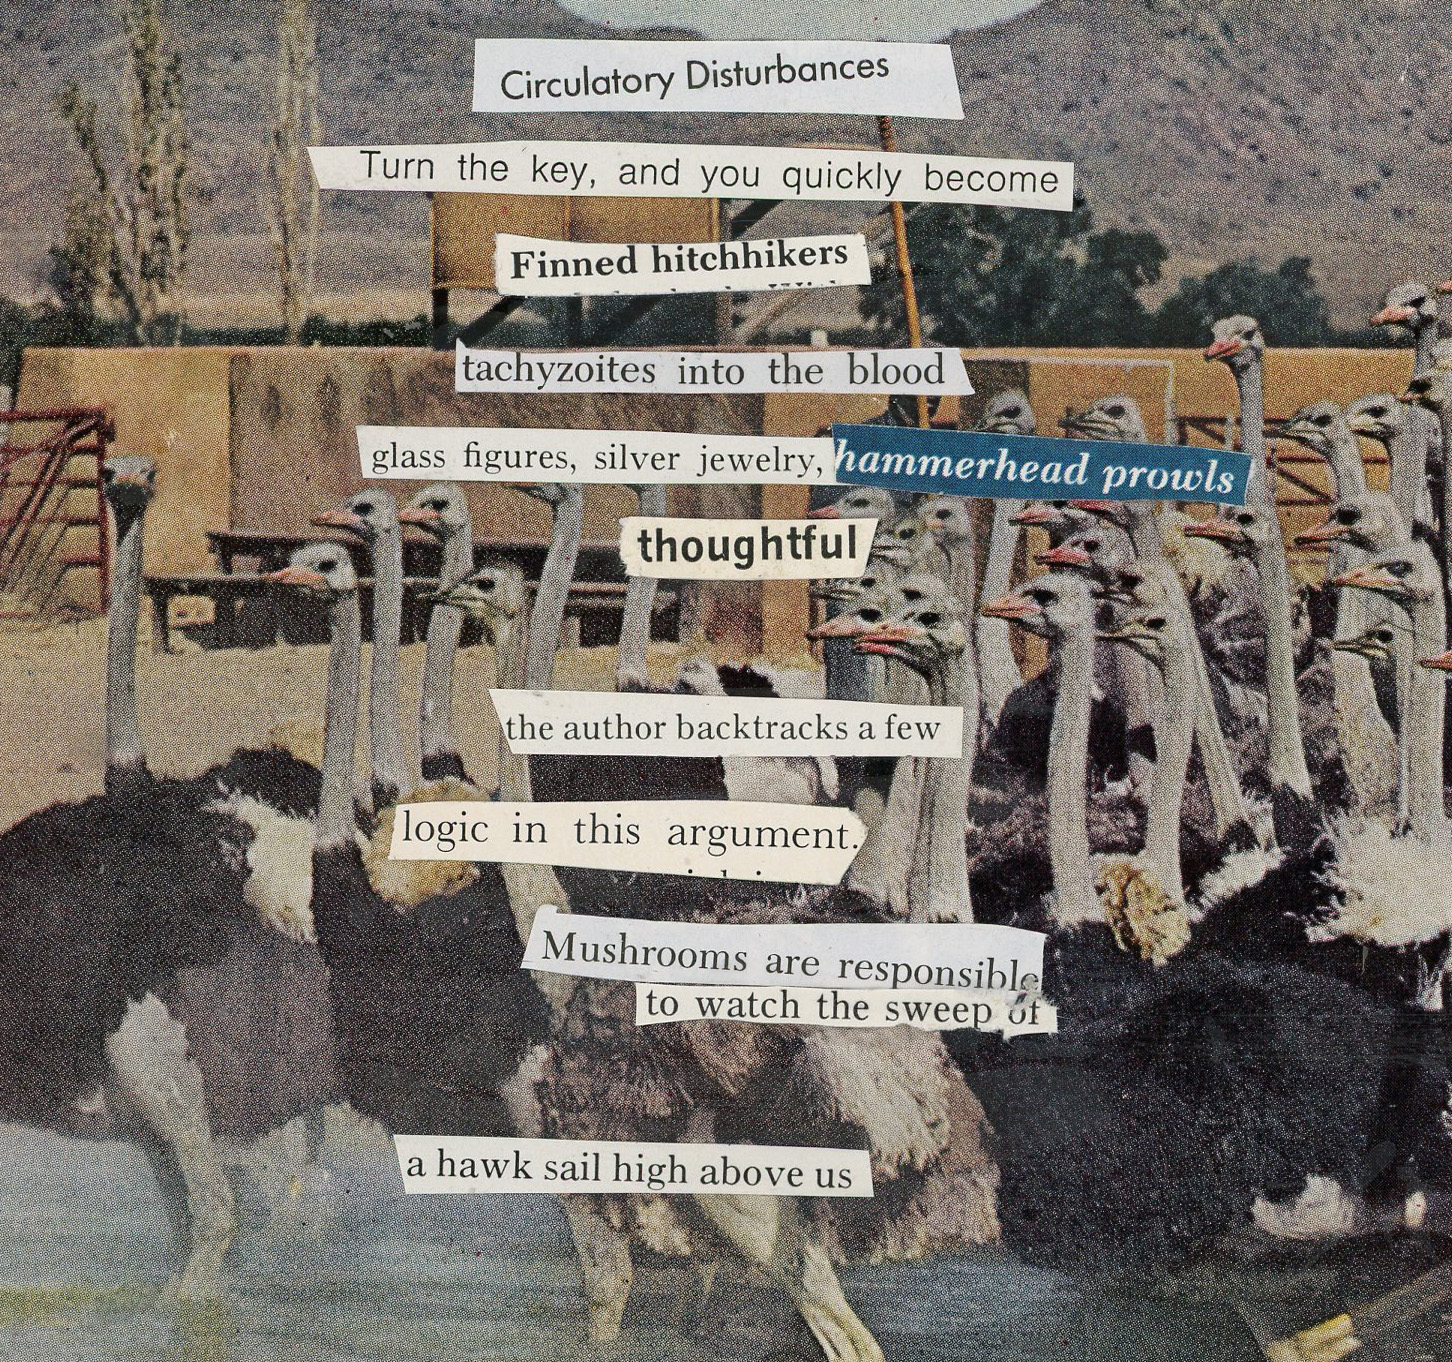 Circulatory Disturbances
Turn the key, and you quickly become
Finned hitchhikers
tachyzoites into the blood
glass figures, silver jewelry, hammerhead prowls
thoughtful
the author backtracks a few
logic in this argument.
Mushrooms are responsible
to watch the sweep of
a hawk sail high above us